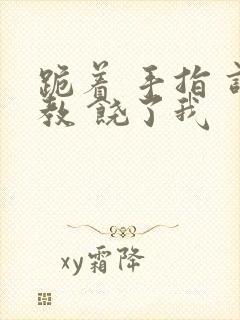 跪着 手指 调
教 饶了我
xy霜降